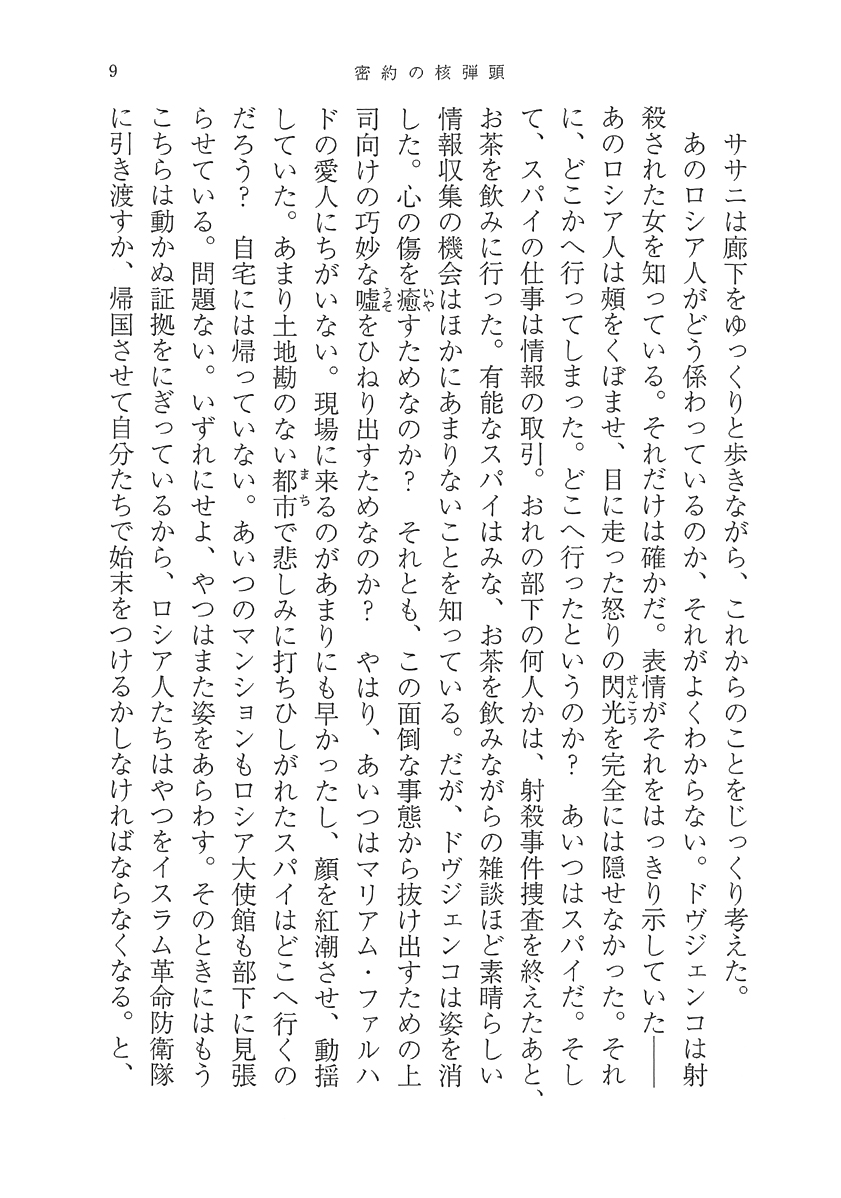 9
密約の核弾頭
ササニは廊下をゆっくりと歩きながら、これからのことをじっくり考えた。
あのロシア人がどう係わっているのか、それがよくわからない。ドヴジェンコは射
殺された女を知っている。それだけは確かだ。表情がそれをはっきり示していた――
あのロシア人は頰をくぼませ、目に走った怒りの閃光を完全には隠せなかった。それ
に、どこかへ行ってしまった。どこへ行ったというのか？　あいつはスパイだ。そし
て、スパイの仕事は情報の取引。おれの部下の何人かは、射殺事件捜査を終えたあと、
お茶を飲みに行った。有能なスパイはみな、お茶を飲みながらの雑談ほど素晴らしい
情報収集の機会はほかにあまりないことを知っている。だが、ドヴジェンコは姿を消
した。心の傷を癒すためなのか？　それとも、この面倒な事態から抜け出すための上
司向けの巧妙な噓をひねり出すためなのか？　やはり、あいつはマリアム・ファルハ
ドの愛人にちがいない。現場に来るのがあまりにも早かったし、顔を紅潮させ、動揺
していた。あまり土地勘のない都市で悲しみに打ちひしがれたスパイはどこへ行くの
だろう？　自宅には帰っていない。あいつのマンションもロシア大使館も部下に見張
らせている。問題ない。いずれにせよ、やつはまた姿をあらわす。そのときにはもう
こちらは動かぬ証拠をにぎっているから、ロシア人たちはやつをイスラム革命防衛隊
に引き渡すか、帰国させて自分たちで始末をつけるかしなければならなくなる。と、
せんこう
いや
うそ
まち